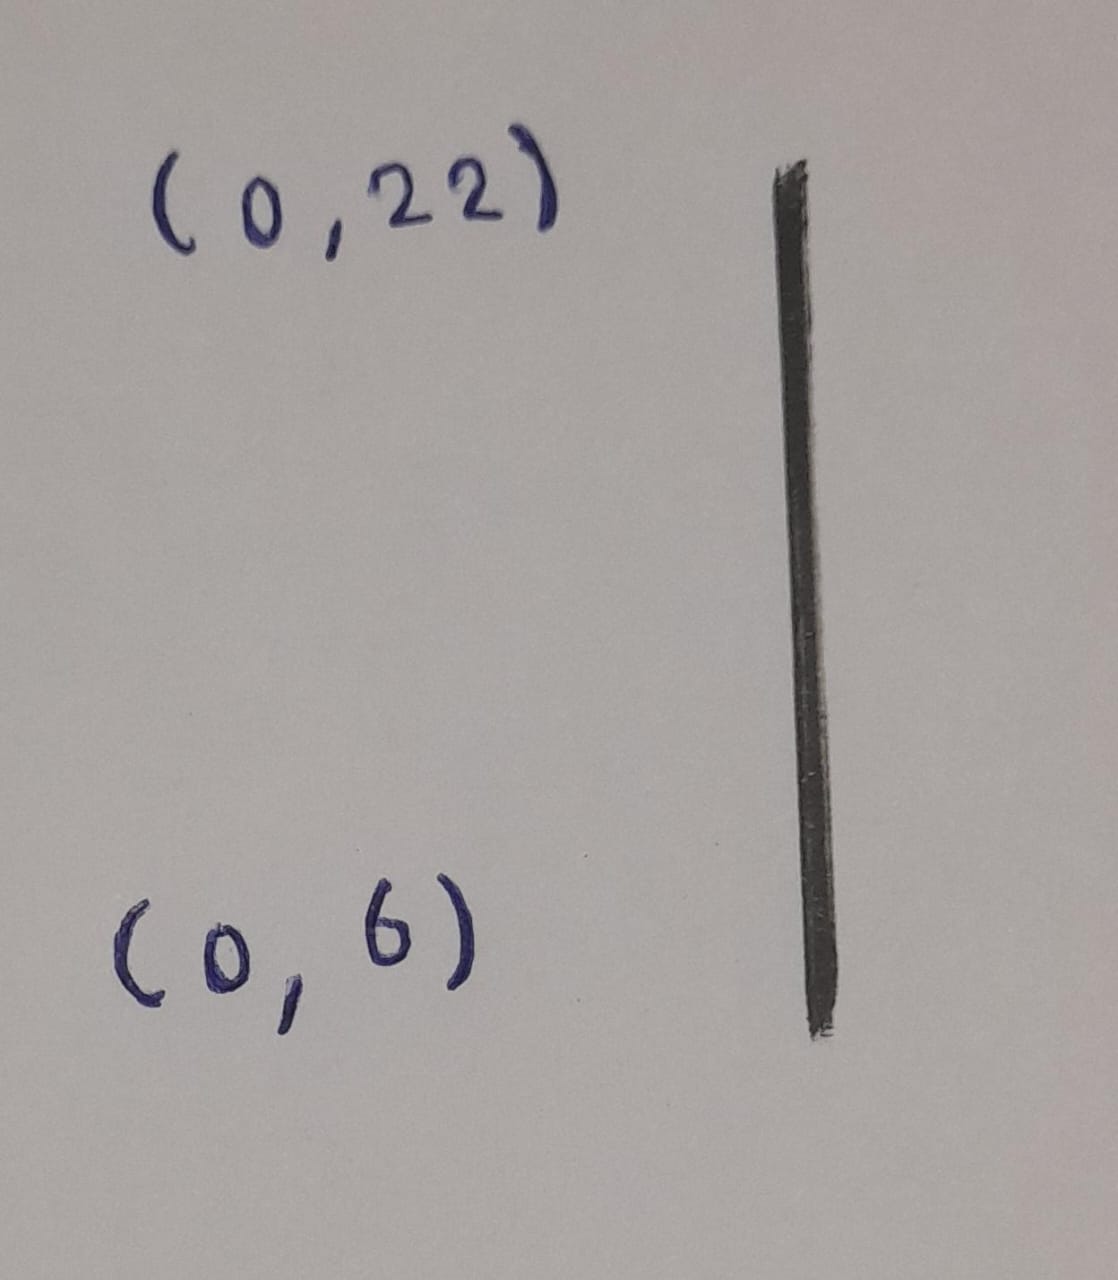 (0,22)
(0,6)